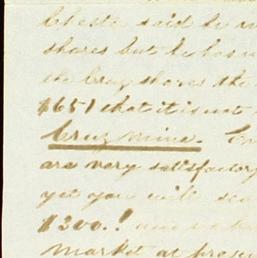 Cheste said he
shares but he has
the Cruz shares the
$651 that it is not
Cruz mine.
are very satisfactory
yet you will
$300.!
market at presen